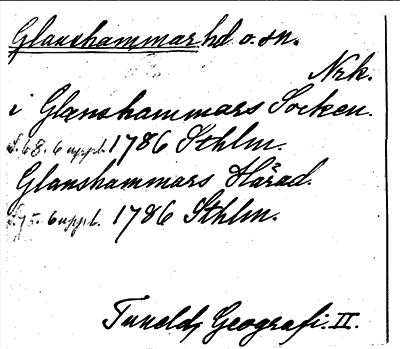 Glanshammar hd o. sn.
Nrk.
i Glanshammars Socken.
s. 68. 6 uppl. 1786 Sthlm.
Glanshammars Härad.
s. 75. 6 uppl. 1786 Sthlm.
Tunelds Geografi. II.